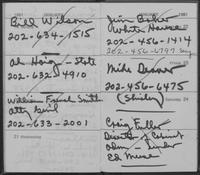 1981
Bill Wilson
202-634-1515
Al Haig - State
202-632-4910
William French Smith
Atty Gen'l
202-633-2001
21 Wednesday
1981
Jim Baker
White House
202-456-1414
202-456-6797
Mike Deaver
202-456-6475
(Shirley)
Saturday 24
Craig Fuller
Director of Cabinet
Adm - Under
Ed Meese